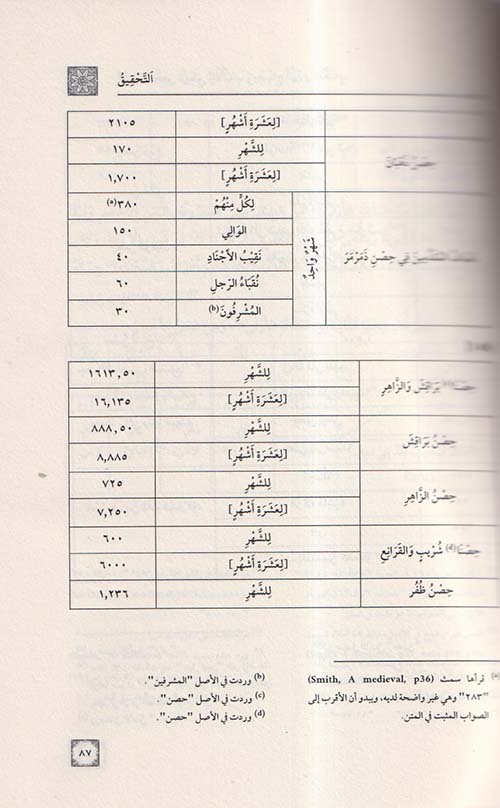 اَلتَّحْقِيقُ
[لِعَشَرَةِ أَشْهُرٍ] ٢١٠٥
لِلشَّهْرِ ١٧٠
حِصْنُ
[لِعَشَرَةِ أَشْهُرٍ] ١,٧٠٠
لِكُلٍّ مِنْهُمْ ٣٨٠(a)
الوَالِي ١٥٠
فِي حِصْنِ ذَمَرْمَرَ شَهْرٌ وَاحِدٌ نَقِيْبُ الأَجْنَادِ ٤٠
نُقَبَاءُ الرَّجلِ ٦٠
المُشْرِفُونَ(b) ٣٠
حِصْنَا(c) بَرَاقِشَ وَالزَّاهِرِ لِلشَّهْرِ ١٦١٣,٥٠
[لِعَشَرَةِ أَشْهُرٍ] ١٦,١٣٥
حِصْنُ بَرَاقِشَ لِلشَّهْرِ ٨٨٨,٥٠
[لِعَشَرَةِ أَشْهُرٍ] ٨,٨٨٥
حِصْنُ الزَّاهِرِ لِلشَّهْرِ ٧٢٥
[لِعَشَرَةِ أَشْهُرٍ] ٧,٢٥٠
حِصْنَا(d) شُرَيْبٍ وَالقَرَانِعِ لِلشَّهْرِ ٦٠٠
[لِعَشَرَةِ أَشْهُرٍ] ٦٠٠٠
حِصْنُ ظُفُر لِلشَّهْرِ ١,٢٣٦
(a) قرأها سمث (Smith, A medieval, p36)
"٢٨٣" وهي غير واضحة لديه، ويبدو أن الأقرب إلى
الصواب المثبت في المتن.
(b) وردت في الأصل "المشرفين".
(c) وردت في الأصل "حصن".
(d) وردت في الأصل "حصن".
٨٧